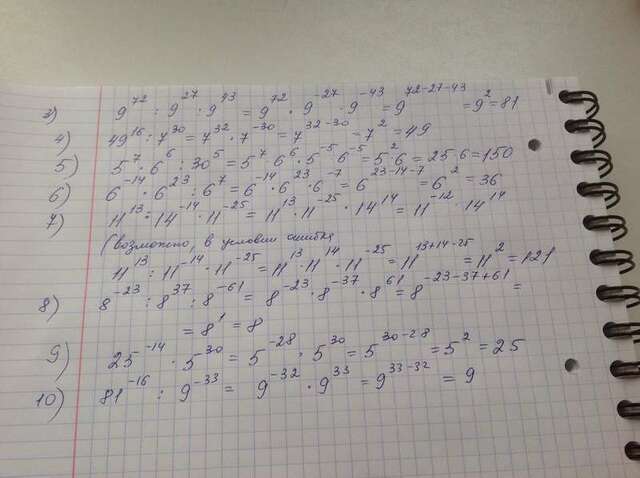 3) 9^72 : 9^27 · 9^43 = 9^72 · 9^-27 · 9^-43 = 9^72-27-43 = 9^2 = 81
4) 49^16 : 7^30 = 7^32 · 7^-30 = 7^32-30 - 7^2 = 49
5) 5^7 · 6^6 : 30^5 = 5^7 · 6^6 · 5^-5 · 6^-5 = 5^2 · 6 = 25·6 = 150
6) 6^-14 · 6^23 : 6^7 = 6^-14 · 6^23 · 6^-7 = 6^23-14-7 = 6^2 = 36
7) 11^13 : 14^-14 · 11^-25 = 11^13 · 11^-25 · 14^14 = 11^-12 · 14^14
(возможно, в условии ошибка
11^13 : 11^-14 · 11^-25 = 11^13 · 11^14 · 11^-25 = 11^13+14-25 = 11^2 = 121
8) 8^-23 : 8^37 : 8^-61 = 8^-23 · 8^-37 · 8^61 = 8^-23-37+61 =
= 8^1 = 8
9) 25^-14 · 5^30 = 5^-28 · 5^30 = 5^30-28 = 5^2 = 25
10) 81^-16 : 9^-33 = 9^-32 · 9^33 = 9^33-32 = 9